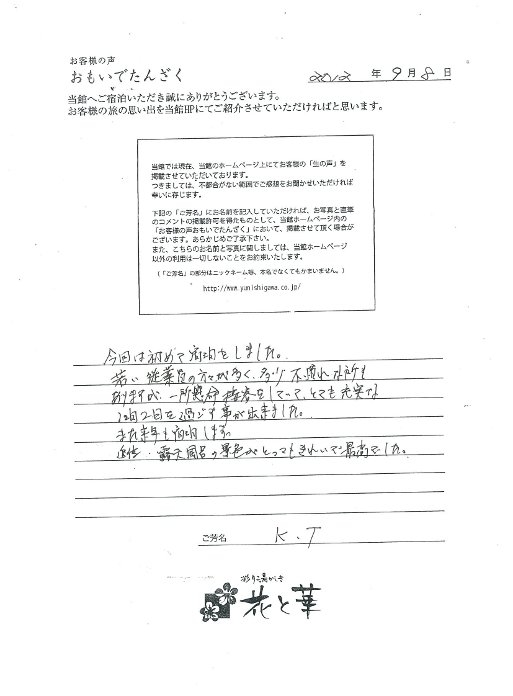 お客様の声
おもいでたんざく
2012 年 9 月 8 日
当館へご宿泊いただき誠にありがとうございます。
お客様の旅の思い出を当館HPにてご紹介させていただければと思います。
当館では現在、当館のホームページ上にてお客様の「生の声」を
掲載させていただいております。
つきましては、不都合がない範囲でご感想をお聞かせいただければ
幸いに存じます。
下記の「ご芳名」にお名前を記入していただければ、お写真と直筆
のコメントの掲載許可を得たものとして、当館ホームページ内の
「お客様の声おもいでたんざく」において、掲載させて頂く場合が
ございます。あらかじめご了承下さい。
また、こちらのお名前と写真に関しましては、当館ホームページ
以外の利用は一切しないことをお約束いたします。
(「ご芳名」の部分はニックネーム等、本名でなくてもかまいません。)
http://www.yunishigawa.co.jp/
今回は初めて宿泊をしました。
若い従業員の方々が多く、多少不慣れな所も
ありますが、一所懸命接客をしていて、とても充実な
1泊2日を過ごす事が出来ました。
また来年も宿泊します。
追伸・露天風呂の景色がとってもきれいで最高でした。
ご芳名 K.T
彩り湯かしき
花と華